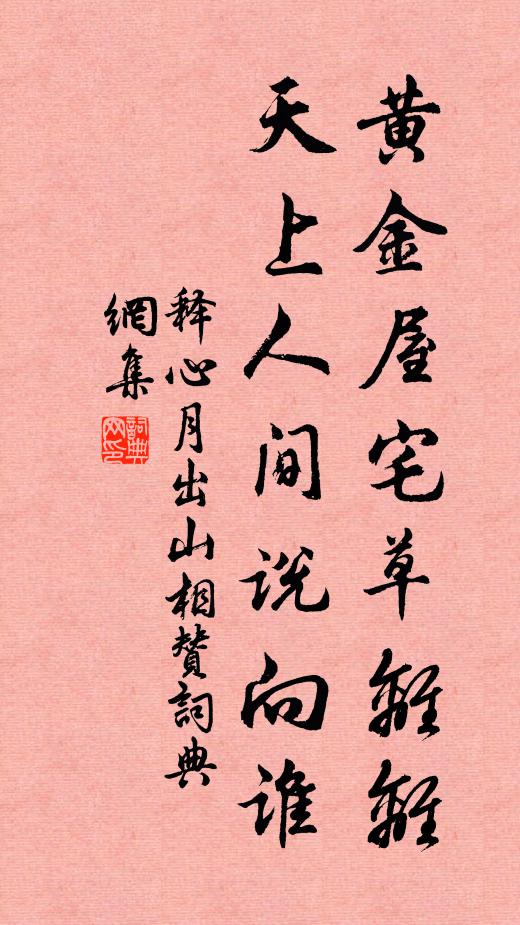 黄金屋宅草離離
天上人间说向谁
释心月出山相赞詞典
網集
詞典
网印